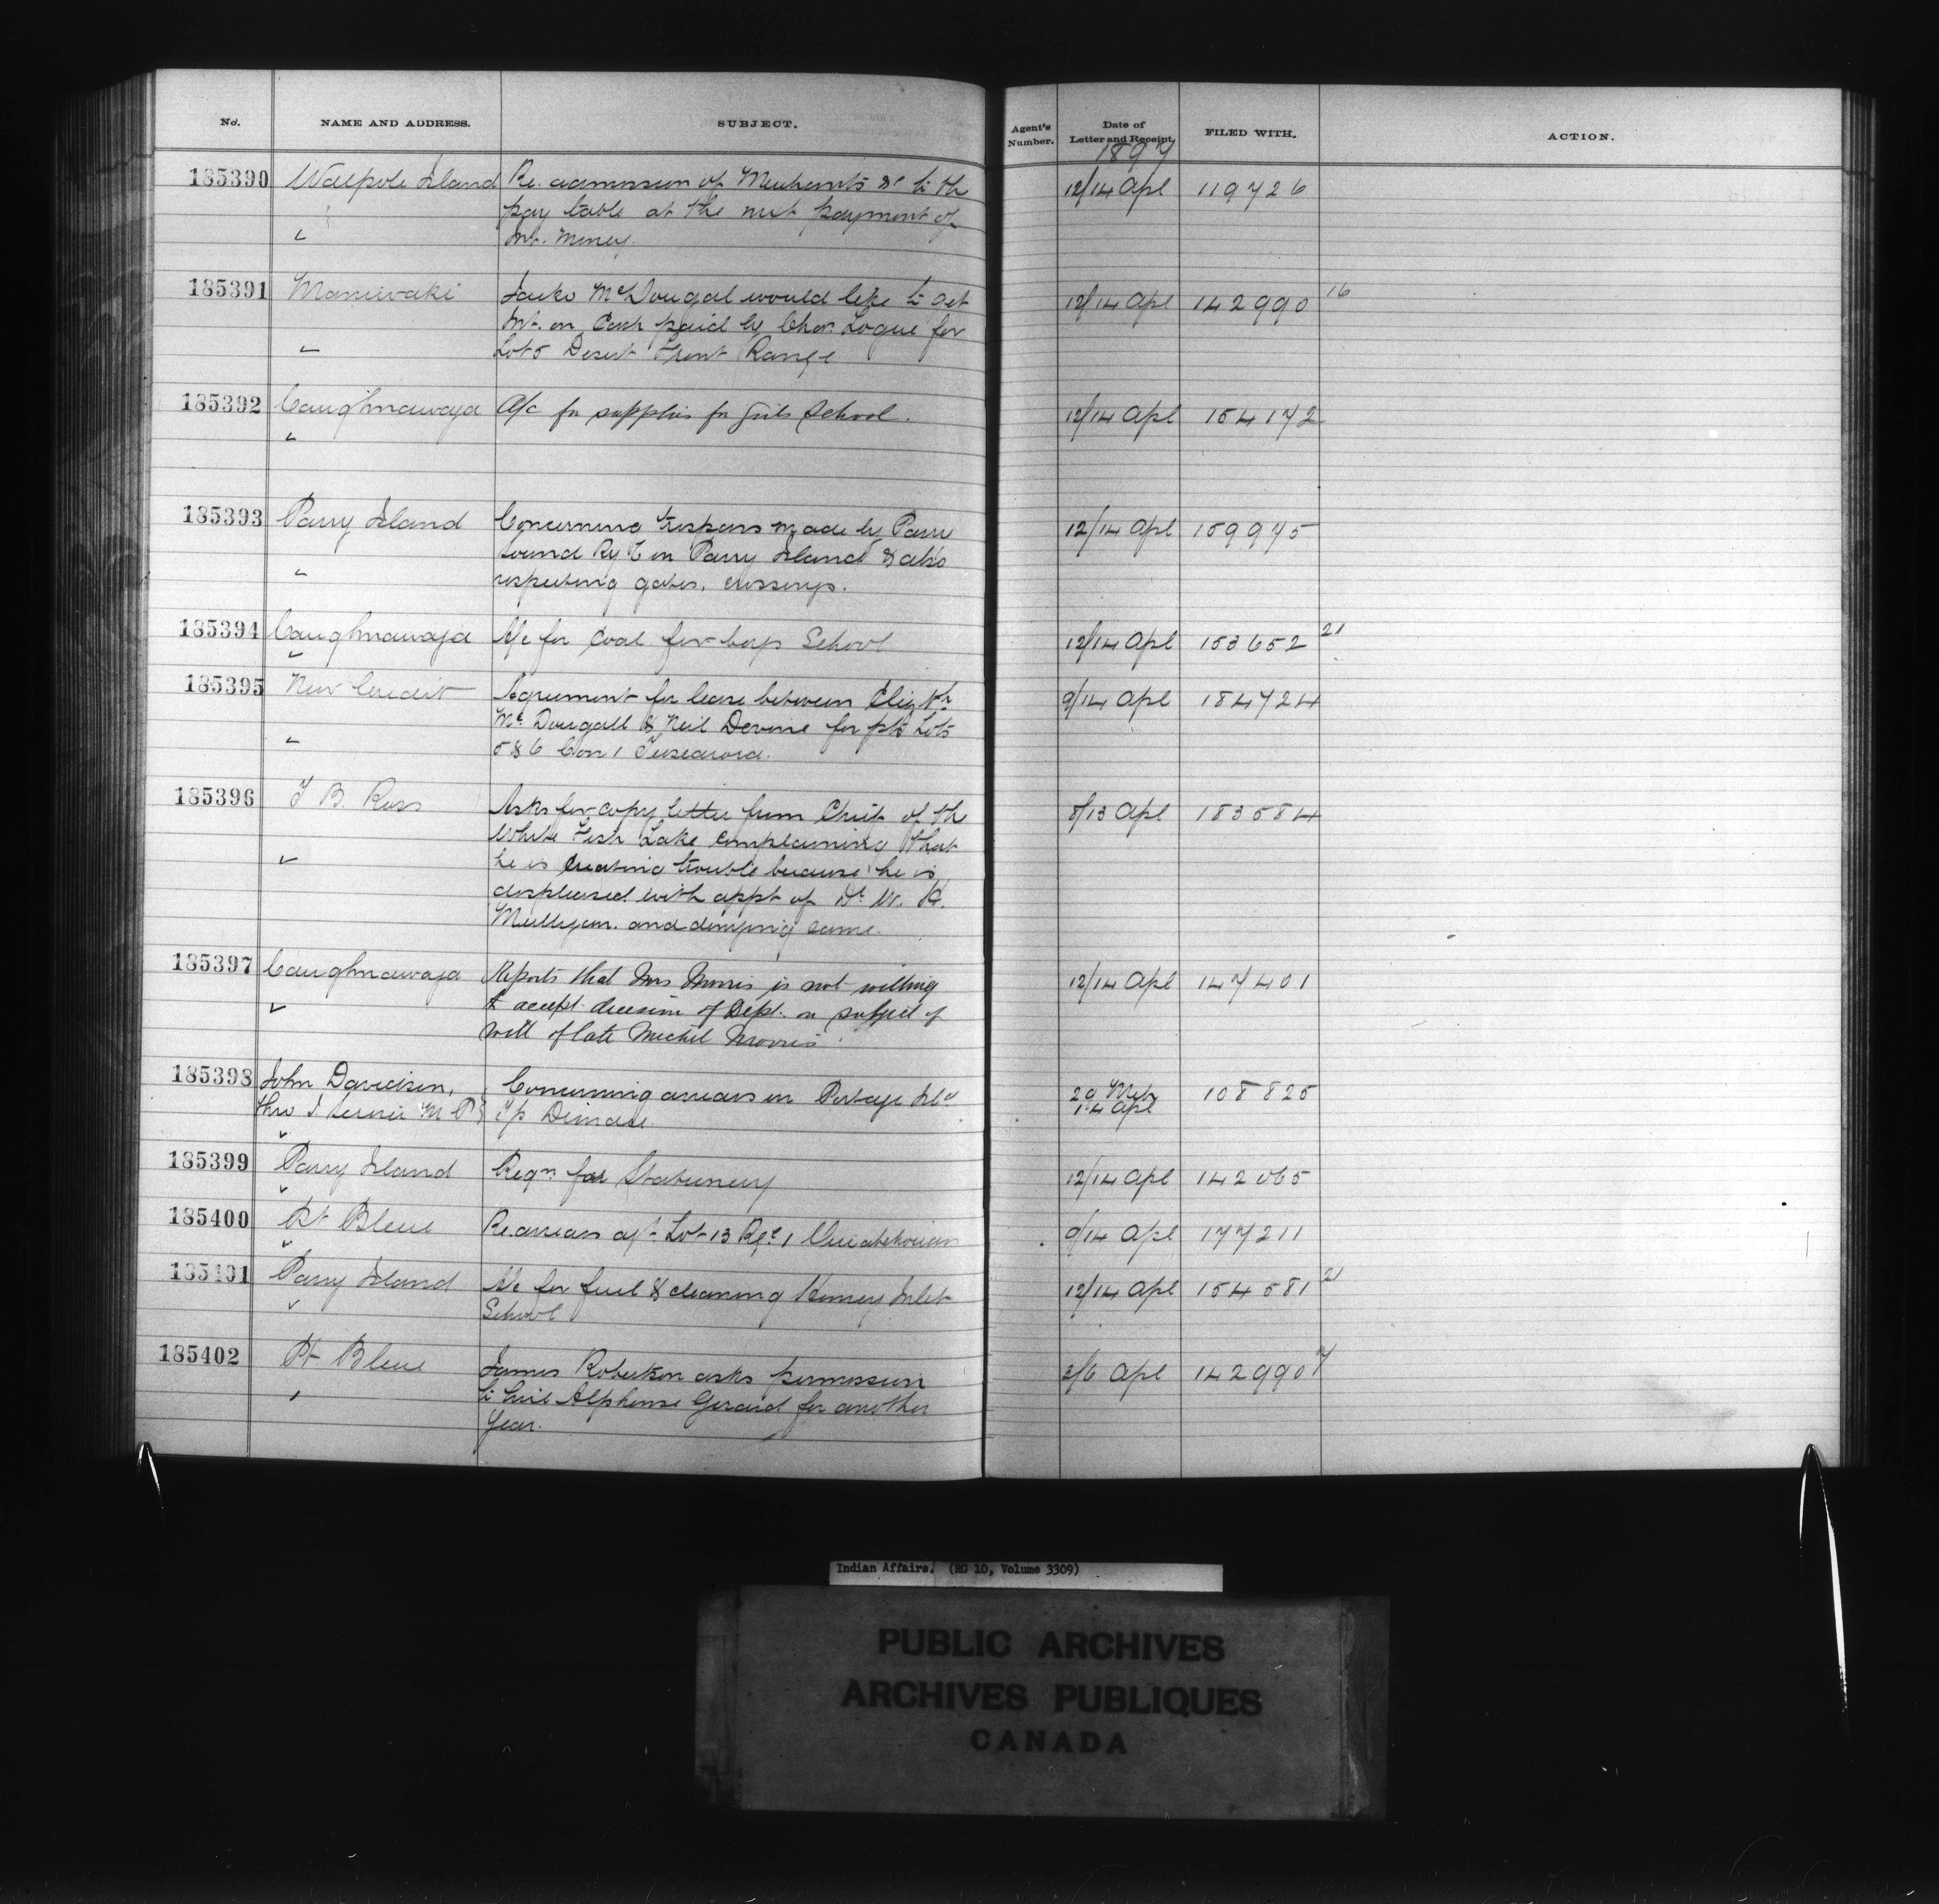 No. NAME AND ADDRESS. SUBJECT. Agent's Number. Date of Letter and Receipt. FILED WITH. ACTION.
1897
185390 Walpole Island Re. admission of Merchants &c to the 12/14 Apl 119726
pay table at the next payment of
Int. Money.
185391 Maniwaki McDougal would like to get 12/14 Apl 142990 16
Int. on Cash paid by Chas. Logue for
Lot 5 Desert Front Range
185392 Caughnawaga A/c for supplies for Girls School. 12/14 Apl 154172
185393 Parry Island Concerning trespass made by Parry 12/14 Apl 159975
Sound Ry Co on Parry Island & also
respecting gates, crossings.
185394 Caughnawaga A/c for Coal for boys School 12/14 Apl 153652 21
185395 New Credit Agreement for lease between Elizth 9/14 Apl 184724
Mc Dougall & Neil Devine for pts Lots
5 & 6 Con 1 Tuscarora.
185396 T B. Ross Asks for copy letter from Chief of the 8/13 Apl 183584
White Fish Lake complaining that
he is creating trouble because he is
displeased with appt of Dr W. H.
Mulligan. and denying same.
185397 Caughnawaga Reports that Mrs Morris is not willing 12/14 Apl 147401
to accept decision of Dept. on subject of
will of late Michel Morris
185398 John Davidson, Concerning arrears on Portage Isld 29 Mch 108825
thro M P Tp 14 Apl
185399 Parry Island Reqn for Stationery 12/14 Apl 142065
185400 Pt Bleue Re arrears agt. Lot 13 Rge 1 Ouiatchouan 9/14 Apl 177211
185401 Parry Island A/c for fuel & cleaning Henvey Inlet 12/14 Apl 154581 21
School
185402 Pt Bleue James Robertson asks permission 3/6 Apl 142990 17
to hire Alphonse Gerard for another
Year.
Indian Affairs. (RG 10, Volume 3309)
PUBLIC ARCHIVES
ARCHIVES PUBLIQUES
CANADA